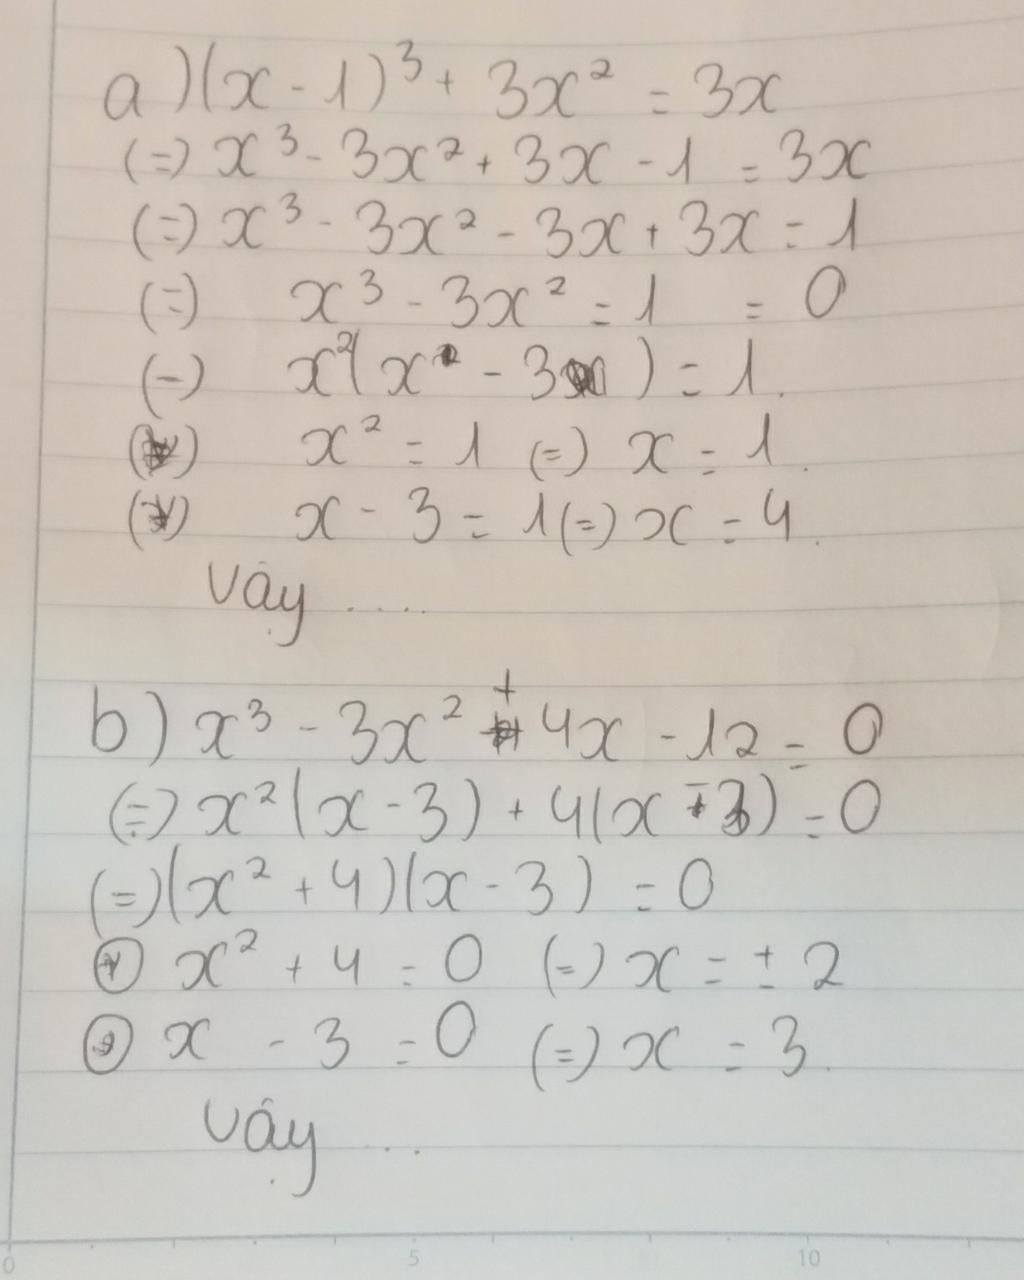 a) (x - 1)³ + 3x² = 3x
(=) x³ - 3x² + 3x - 1 = 3x
(=) x³ - 3x² - 3x + 3x = 1
(=) x³ - 3x² = 1 = 0
(-) x²(x - 3) = 1.
(*) x² = 1 (=) x = 1.
(*) x - 3 = 1 (=) x = 4.
Vậy ....
b) x³ - 3x² + 4x - 12 = 0
(=) x²(x - 3) + 4(x - 3) = 0
(=) (x² + 4)(x - 3) = 0
(*) x² + 4 = 0 (=) x = ± 2
(*) x - 3 = 0 (=) x = 3.
Vậy ...
0 5 10